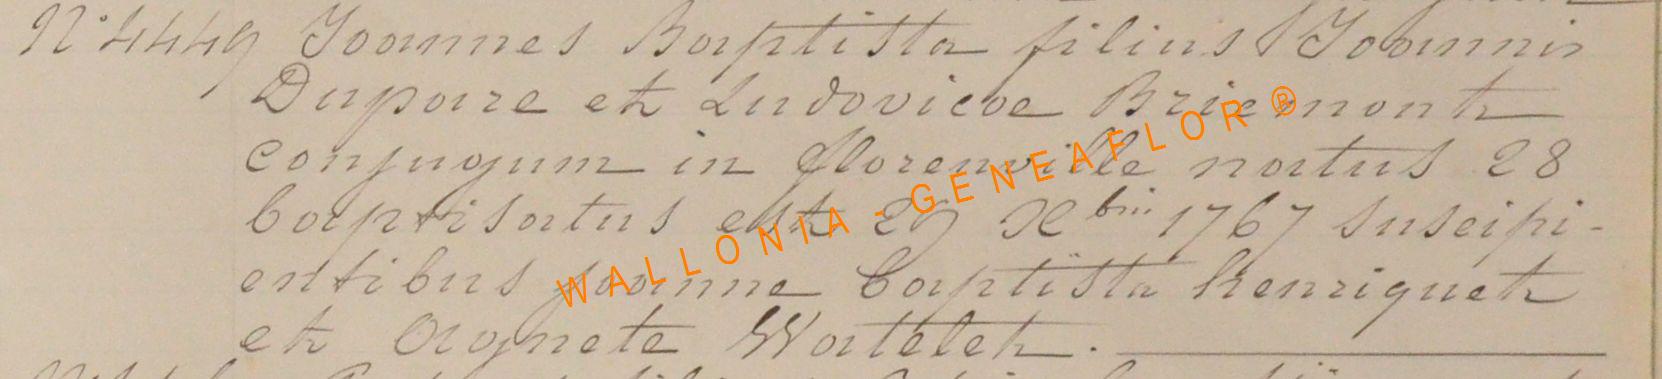 N° 4449 Joannes Baptista filius Joannis
Dupaire et Ludovicae Briemont
conjugum in florenville natus 28
baptisatus est 29 Xbris 1767 suscipi-
entibus joanne baptista henriquet
et Agnete Watelet.
WALLONIA - GENEAFLOR ®